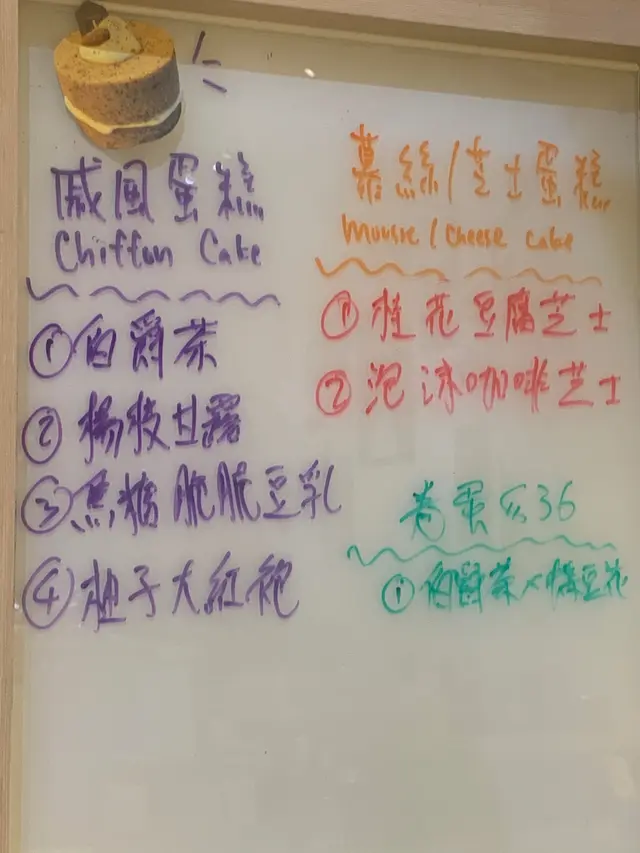 戚風蛋糕
Chiffon Cake
①伯爵茶
②楊枝甘露
③焦糖脆脆豆乳
④柚子大紅袍
慕絲/芝士蛋糕
Mousse/Cheese Cake
①桂花豆腐芝士
②泡沫咖啡芝士
卷蛋 36
①伯爵茶×豆花